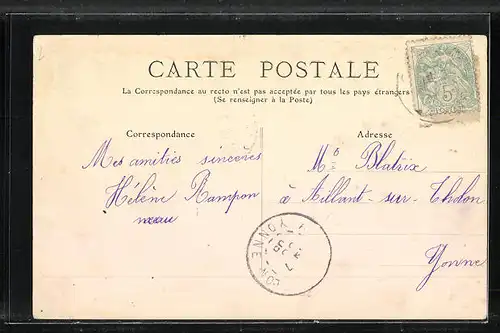 CARTE POSTALE
La Correspondance au recto n'est pas acceptée par tous les pays étrangers
(Se renseigner à la Poste)
Correspondance
Adresse
Mes amitiés sincères
Hélène Rampon
Blatrix
à Aillant-sur-Tholon
Yonne
YONNE
5